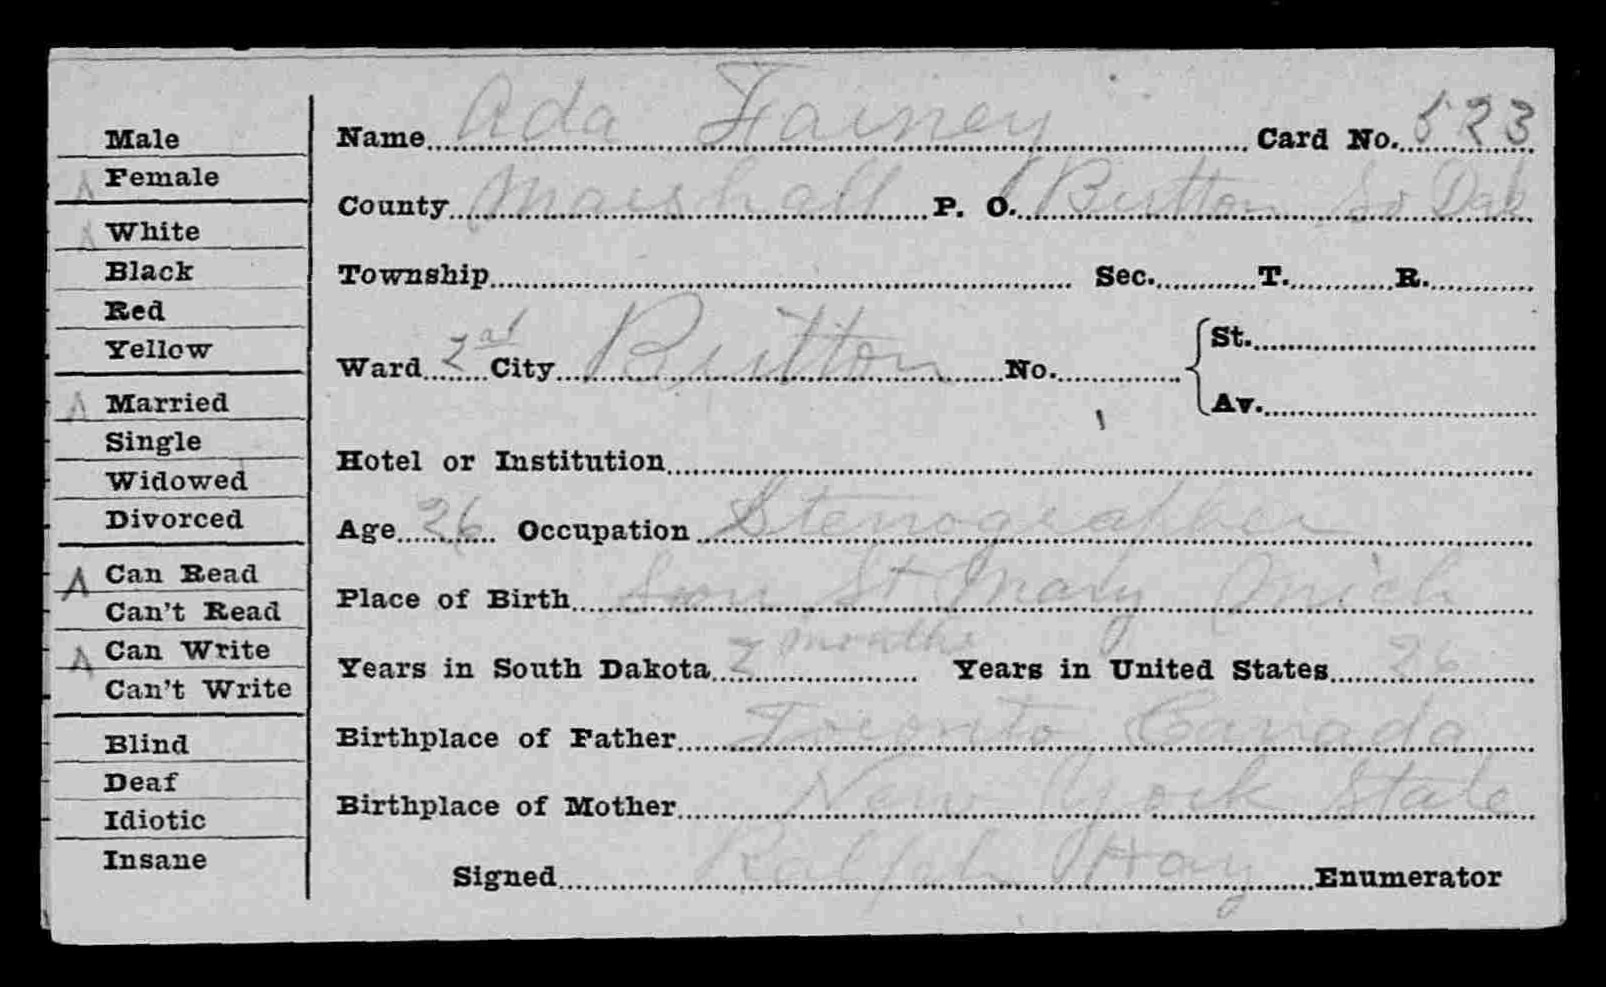 Male
Female
White
Black
Red
Yellow
Married
Single
Widowed
Divorced
Can Read
Can't Read
Can Write
Can't Write
Blind
Deaf
Idiotic
Insane
Name Ada Fainey Card No. 523
County Marshall P. O. Britton So Dak
Township Sec. T. R.
Ward City Britton No. St. Av.
Hotel or Institution
Age 26 Occupation Stenographer
Place of Birth St Mary Mich
Years in South Dakota 7 months Years in United States 26
Birthplace of Father Toronto Canada
Birthplace of Mother New York State
Signed Ralph Hay Enumerator